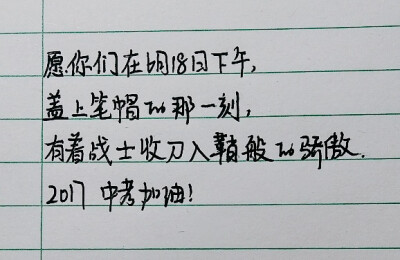 愿你们在6月18日下午,
盖上笔帽的那一刻,
有着战士收刀入鞘般的骄傲.
2017 中考加油!